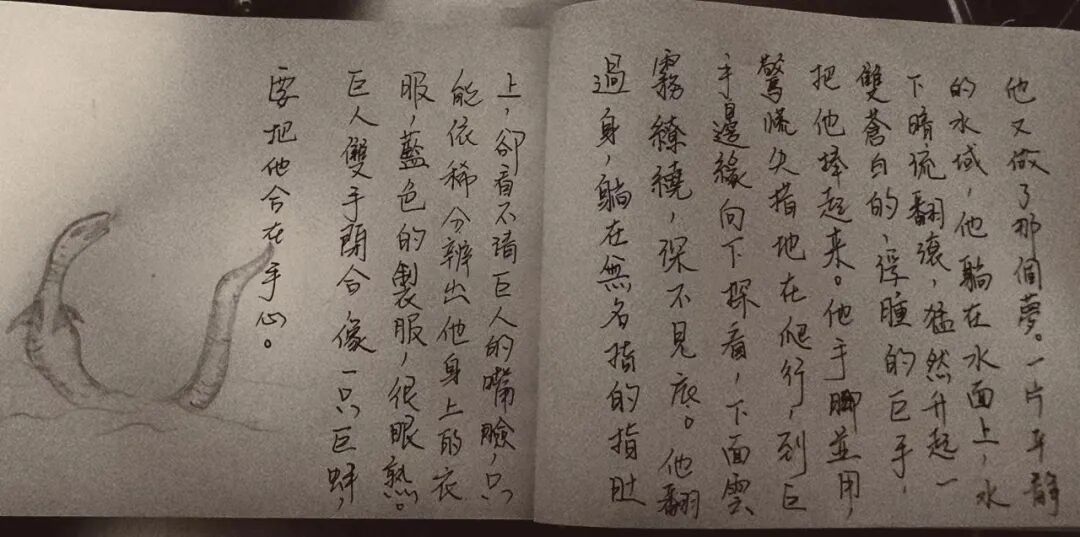 他又做了那個夢。一片平靜
的水域，他躺在水面上，水
下暗流翻滾，猛然升起一
雙蒼白的，浮腫的巨手，
把他捧起来。他手腳並用，
驚慌失措地在爬行，到巨
手邊緣向下探看，下面雲
霧繚繞，深不見底。他翻
過身，躺在無名指的指肚
上，卻看不清巨人的嘴臉，只
能依稀分辨出他身上的衣
服，藍色的製服，很眼熟。
巨人雙手開合，像一只巨蚌，
要把他合在手心。